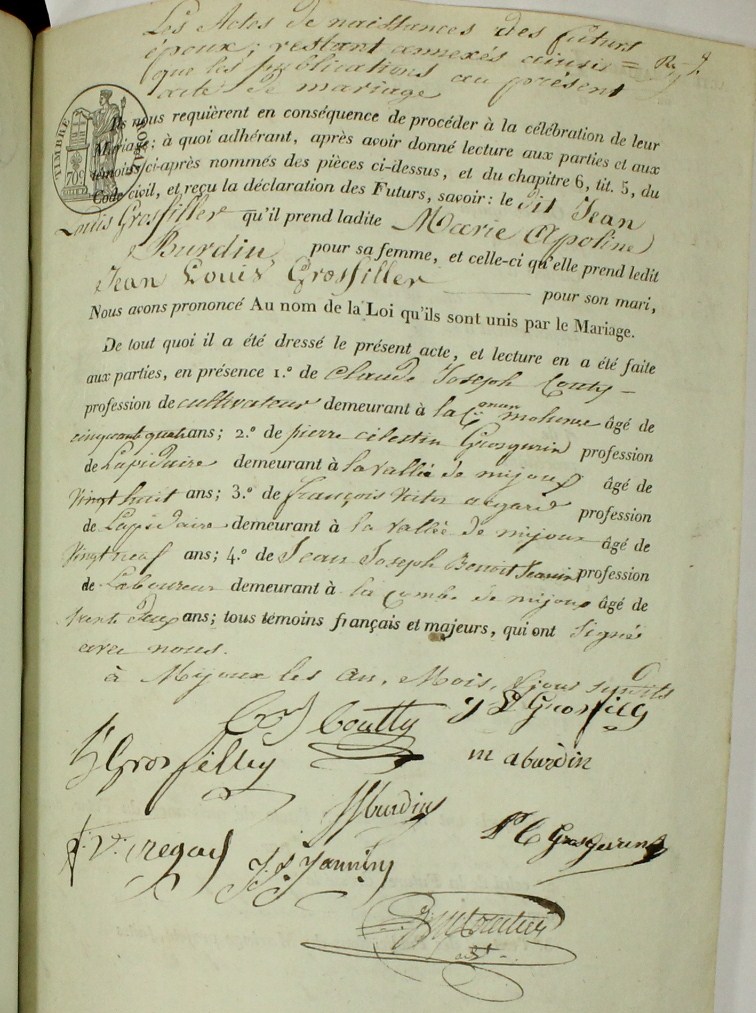 Les Actes de naissances des futurs
époux; restant annexés ainsi =
que les publications au présent
acte de mariage
TIMBRE ROYAL
70c
Ils nous requièrent en conséquence de procéder à la célébration de leur
Mariage; à quoi adhérant, après avoir donné lecture aux parties et aux
témoins ci-après nommés des pièces ci-dessus, et du chapitre 6, tit. 5, du
Code civil, et reçu la déclaration des Futurs, savoir: le dit Jean
Louis Grosfiller qu'il prend ladite Marie Apoline
Burdin pour sa femme, et celle-ci qu'elle prend ledit
Jean Louis Grosfiller pour son mari,
Nous avons prononcé Au nom de la Loi qu'ils sont unis par le Mariage.
De tout quoi il a été dressé le présent acte, et lecture en a été faite
aux parties, en présence 1.º de Claude Joseph Couty
profession de cultivateur demeurant à la molunne âgé de
cinquante quatre ans; 2.º de pierre célestin Grosgurin profession
de Lapidaire demeurant à la vallée de mijoux âgé de
Vingt huit ans; 3.º de françois Victor regard profession
de Lapidaire demeurant à la vallée de mijoux âgé de
Vingt neuf ans; 4.º de Jean Joseph Benoit Jeannin profession
de Laboureur demeurant à la combe de mijoux âgé de
trente deux ans; tous témoins français et majeurs, qui ont signé
avec nous.
à Mijoux les an, Mois, & jour susdits
Coutty J L Grosfiley
Grosfilley m a burdin
burdin
f. V. regad J J Jannin P C Grosgurin